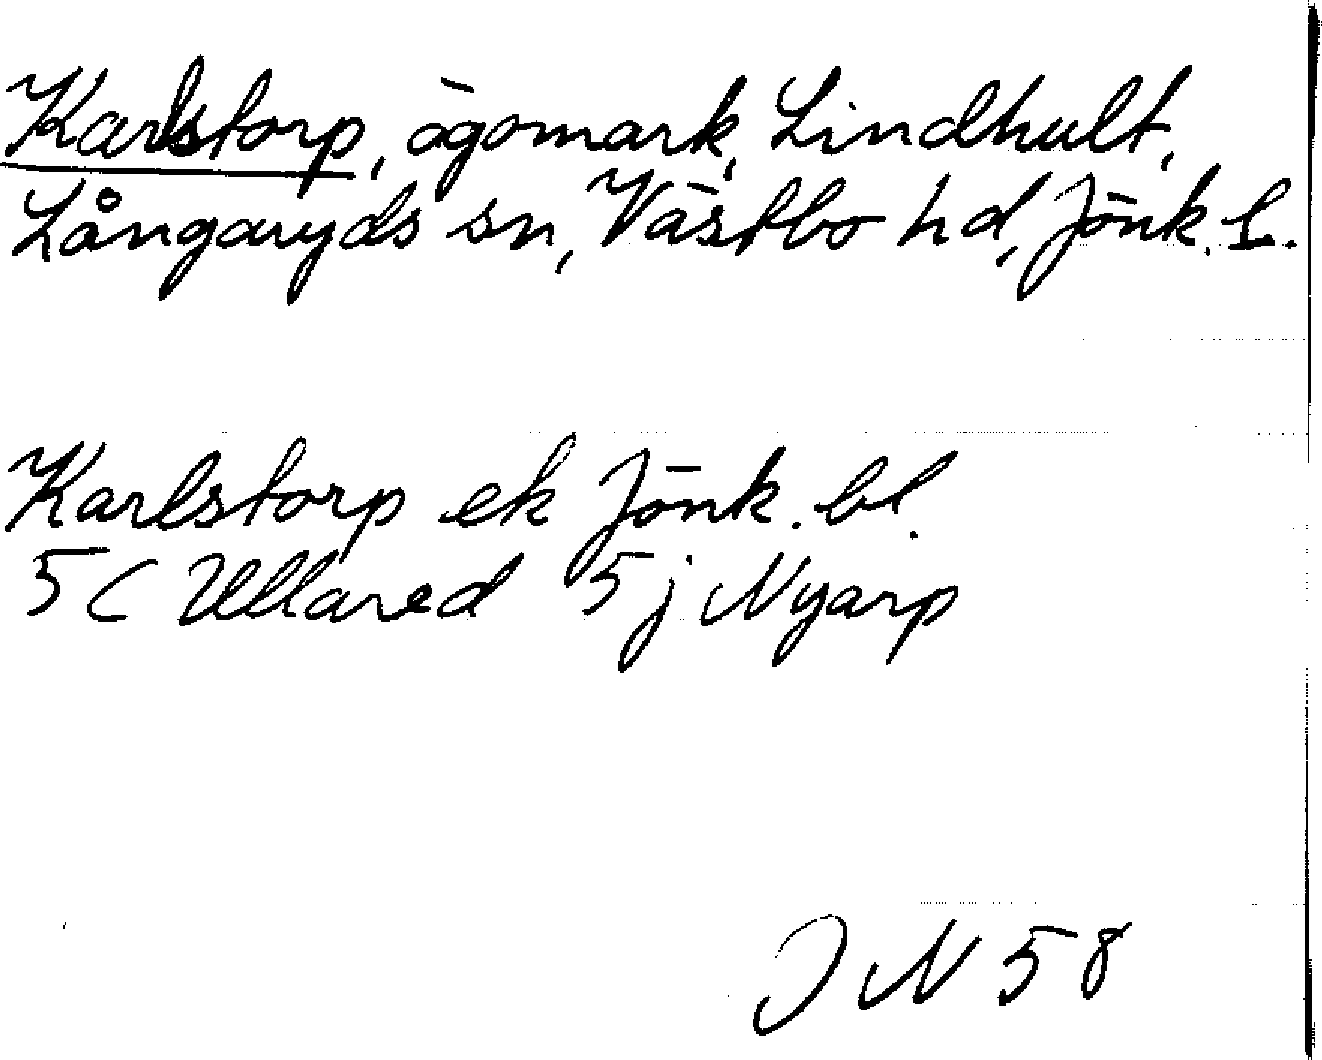 Karlstorp, ägomark, Lindhult,
Långaryds sn, Västbo hd, Jönk. L.
Karlstorp ek Jönk. bl.
5C Ullared 5j Nyarp
JN 58